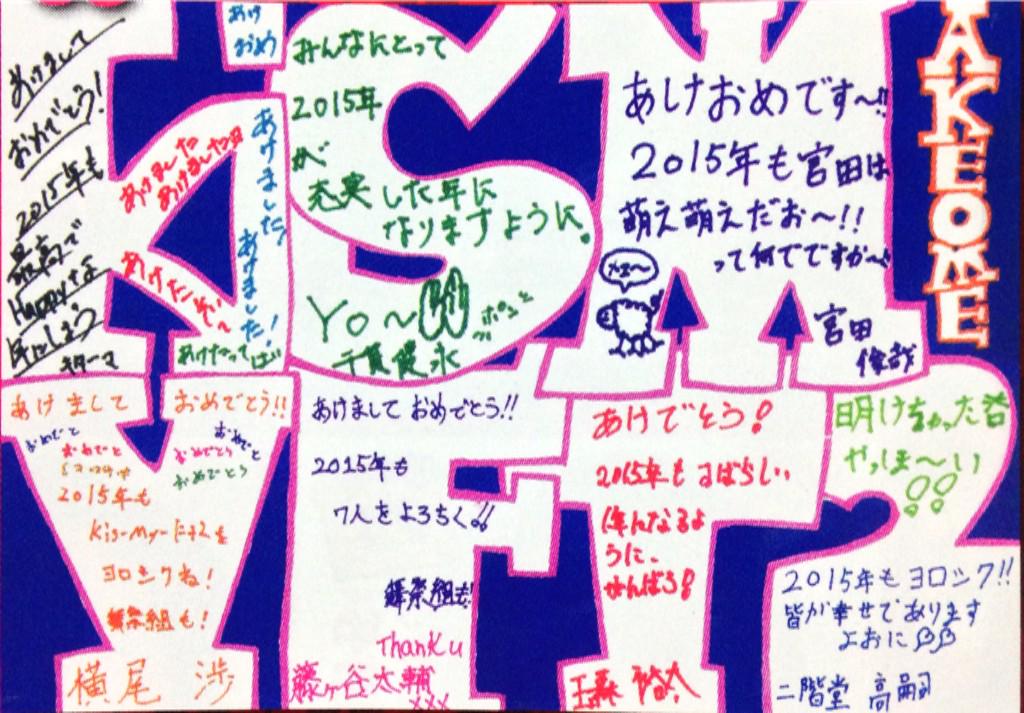 AKEOME
あけまして
おめでとう!
2015年も
最高で
Happyな
年にしよう
キターマ
あけ
おめ
あけました
あけました
あけました!
あけました!
あけたぞぃ
あけたっては
みんなにとって
2015年
が
充実した年に
なりますように。
Yo〜
千賀健永
あけおめです〜!!
2015年も宮田は
萌え萌えだお〜!!
って何でですか〜!
メェ〜
宮田
俊哉
あけまして おめでとう!!
おめでと おめでと
おめでと おめでとう
おめでとう
2015年も
Kis-My-Ft2を
ヨロシクね!
舞祭組も!
横尾 渉
あけまして おめでとう!!
2015年も
7人をよろちく!!
舞祭組も!
Thank u
藤ヶ谷太輔
xxx
あけでとう!
2015年もすばらしい
年になるよ
うに、
がんばる!
玉森 裕太
明けちゃった者
やっほ〜い
!!
2015年もヨロシク!!
皆が幸せであります
よおに
二階堂 高嗣